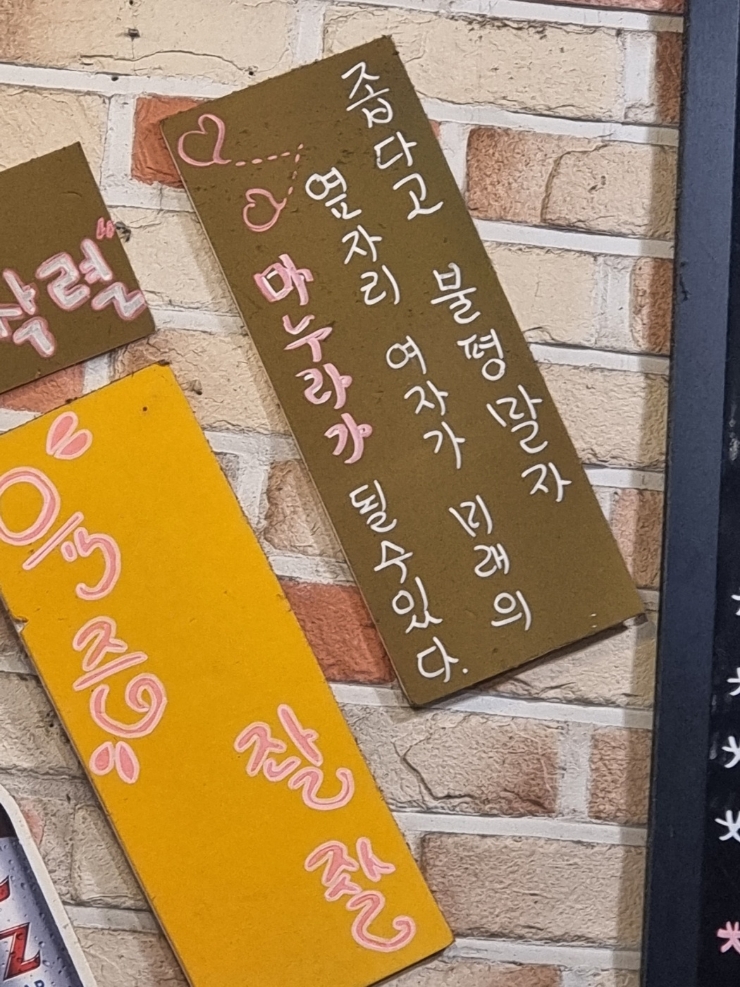 작렬"
좁다고 불평말자
옆자리 여자가 미래의
마누라가 될수있다.
잘